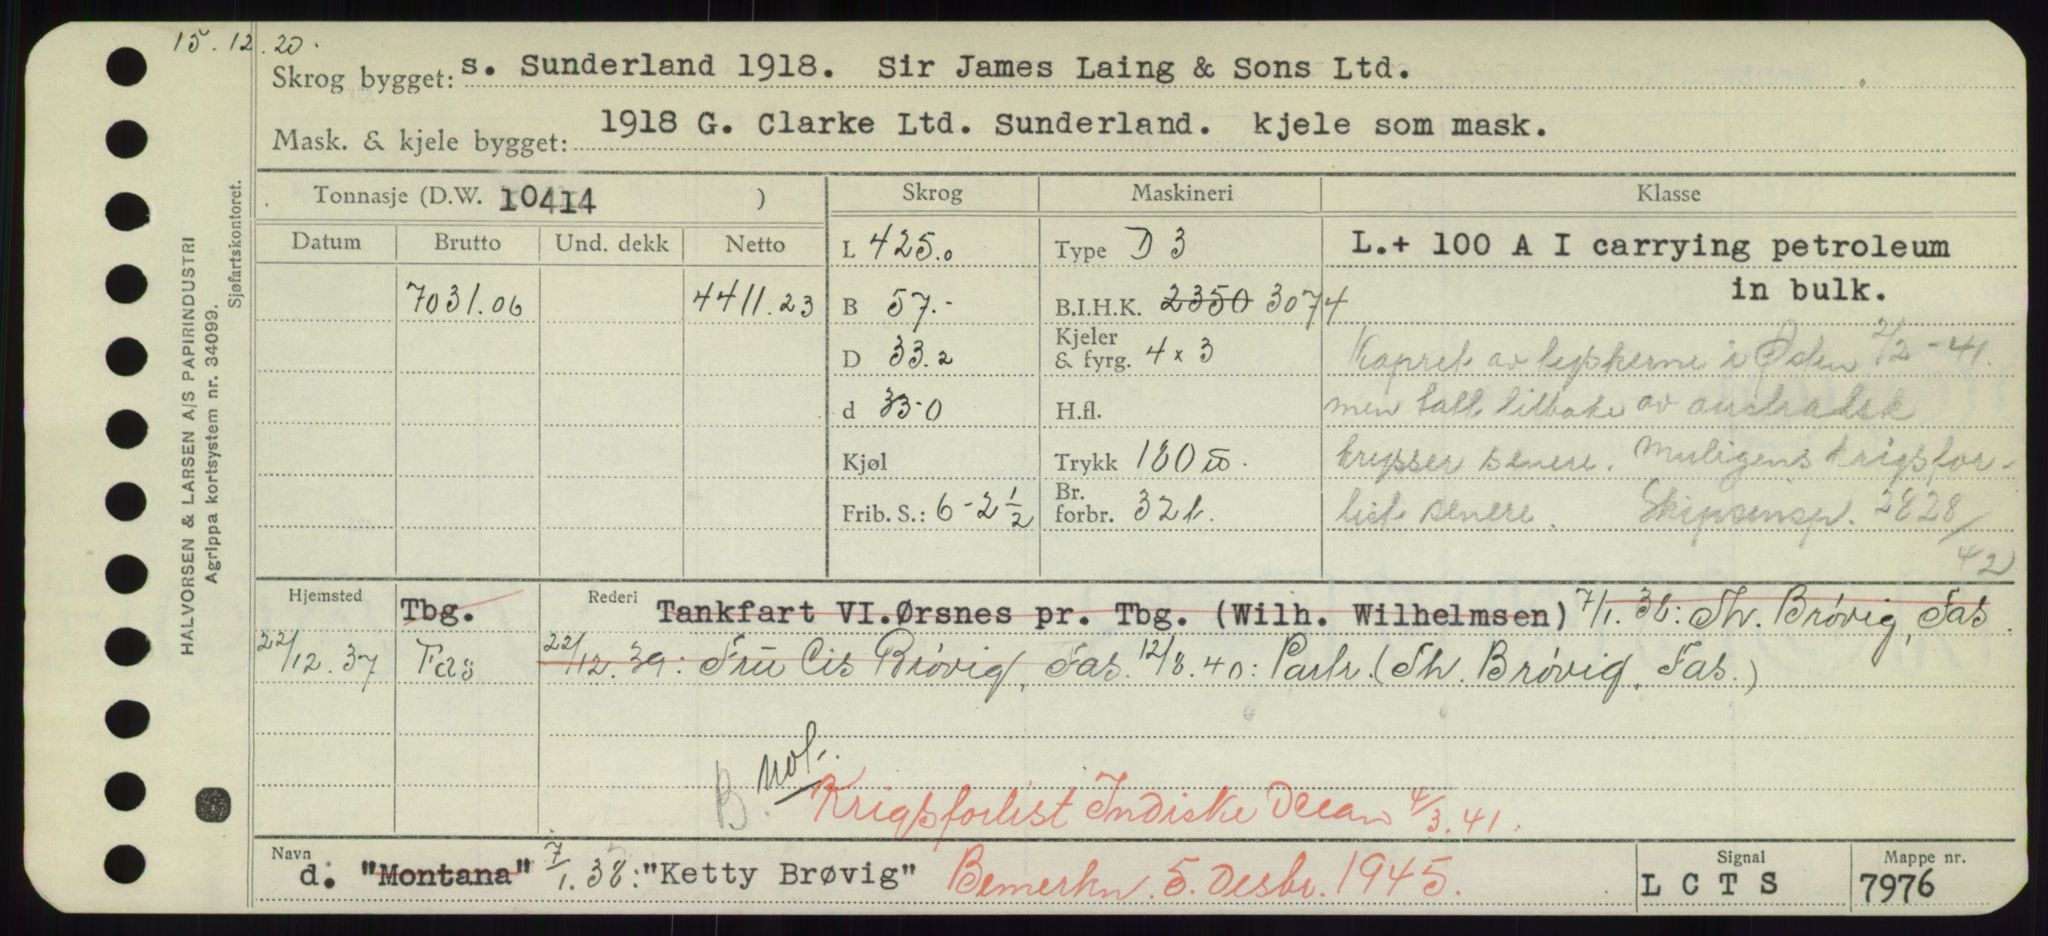 15.12.20.
Skrog bygget: s. Sunderland 1918. Sir James Laing & Sons Ltd.
Mask. & kjele bygget: 1918 G. Clarke Ltd. Sunderland. kjele som mask.
Tonnasje (D.W. 10414 ) Skrog Maskineri Klasse
Datum Brutto Und. dekk Netto L 425.0 Type D 3 L.+ 100 A I carrying petroleum
7031.06 4411.23 B 57.- B.I.H.K. 2350 3074 in bulk.
D 33.2 Kjeler & fyrg. 4 x 3 Kapret av tyskerne i Øden 2/2-41.
d 33-0 H.fl. men tatt tilbake av australsk
Kjøl Trykk 180 krysser senere. Muligens krigsfor-
Frib. S.: 6-2 1/2 Br. forbr. 32 t. list senere. Skipsinsp. 2828/42
Hjemsted Tbg. Rederi Tankfart VI.Ørsnes pr. Tbg. (Wilh. Wilhelmsen) 7/1.38: Th. Brøvig, Fas.
22/12.37 Fas 22/12.39: Fru Cis Brøvig, Fas. 12/8.40: Partr. (Th. Brøvig, Fas.)
B. not.
Krigsforlist Indiske Ocean 4/3.41.
Navn d. "Montana" 7/1.38: "Ketty Brøvig" Bemerkn. 5. Desbr. 1945. Signal LCTS Mappe nr. 7976
HALVORSEN & LARSEN A/S PAPIRINDUSTRI
Agrippa kortsystem nr. 34099.
Sjøfartskontoret.